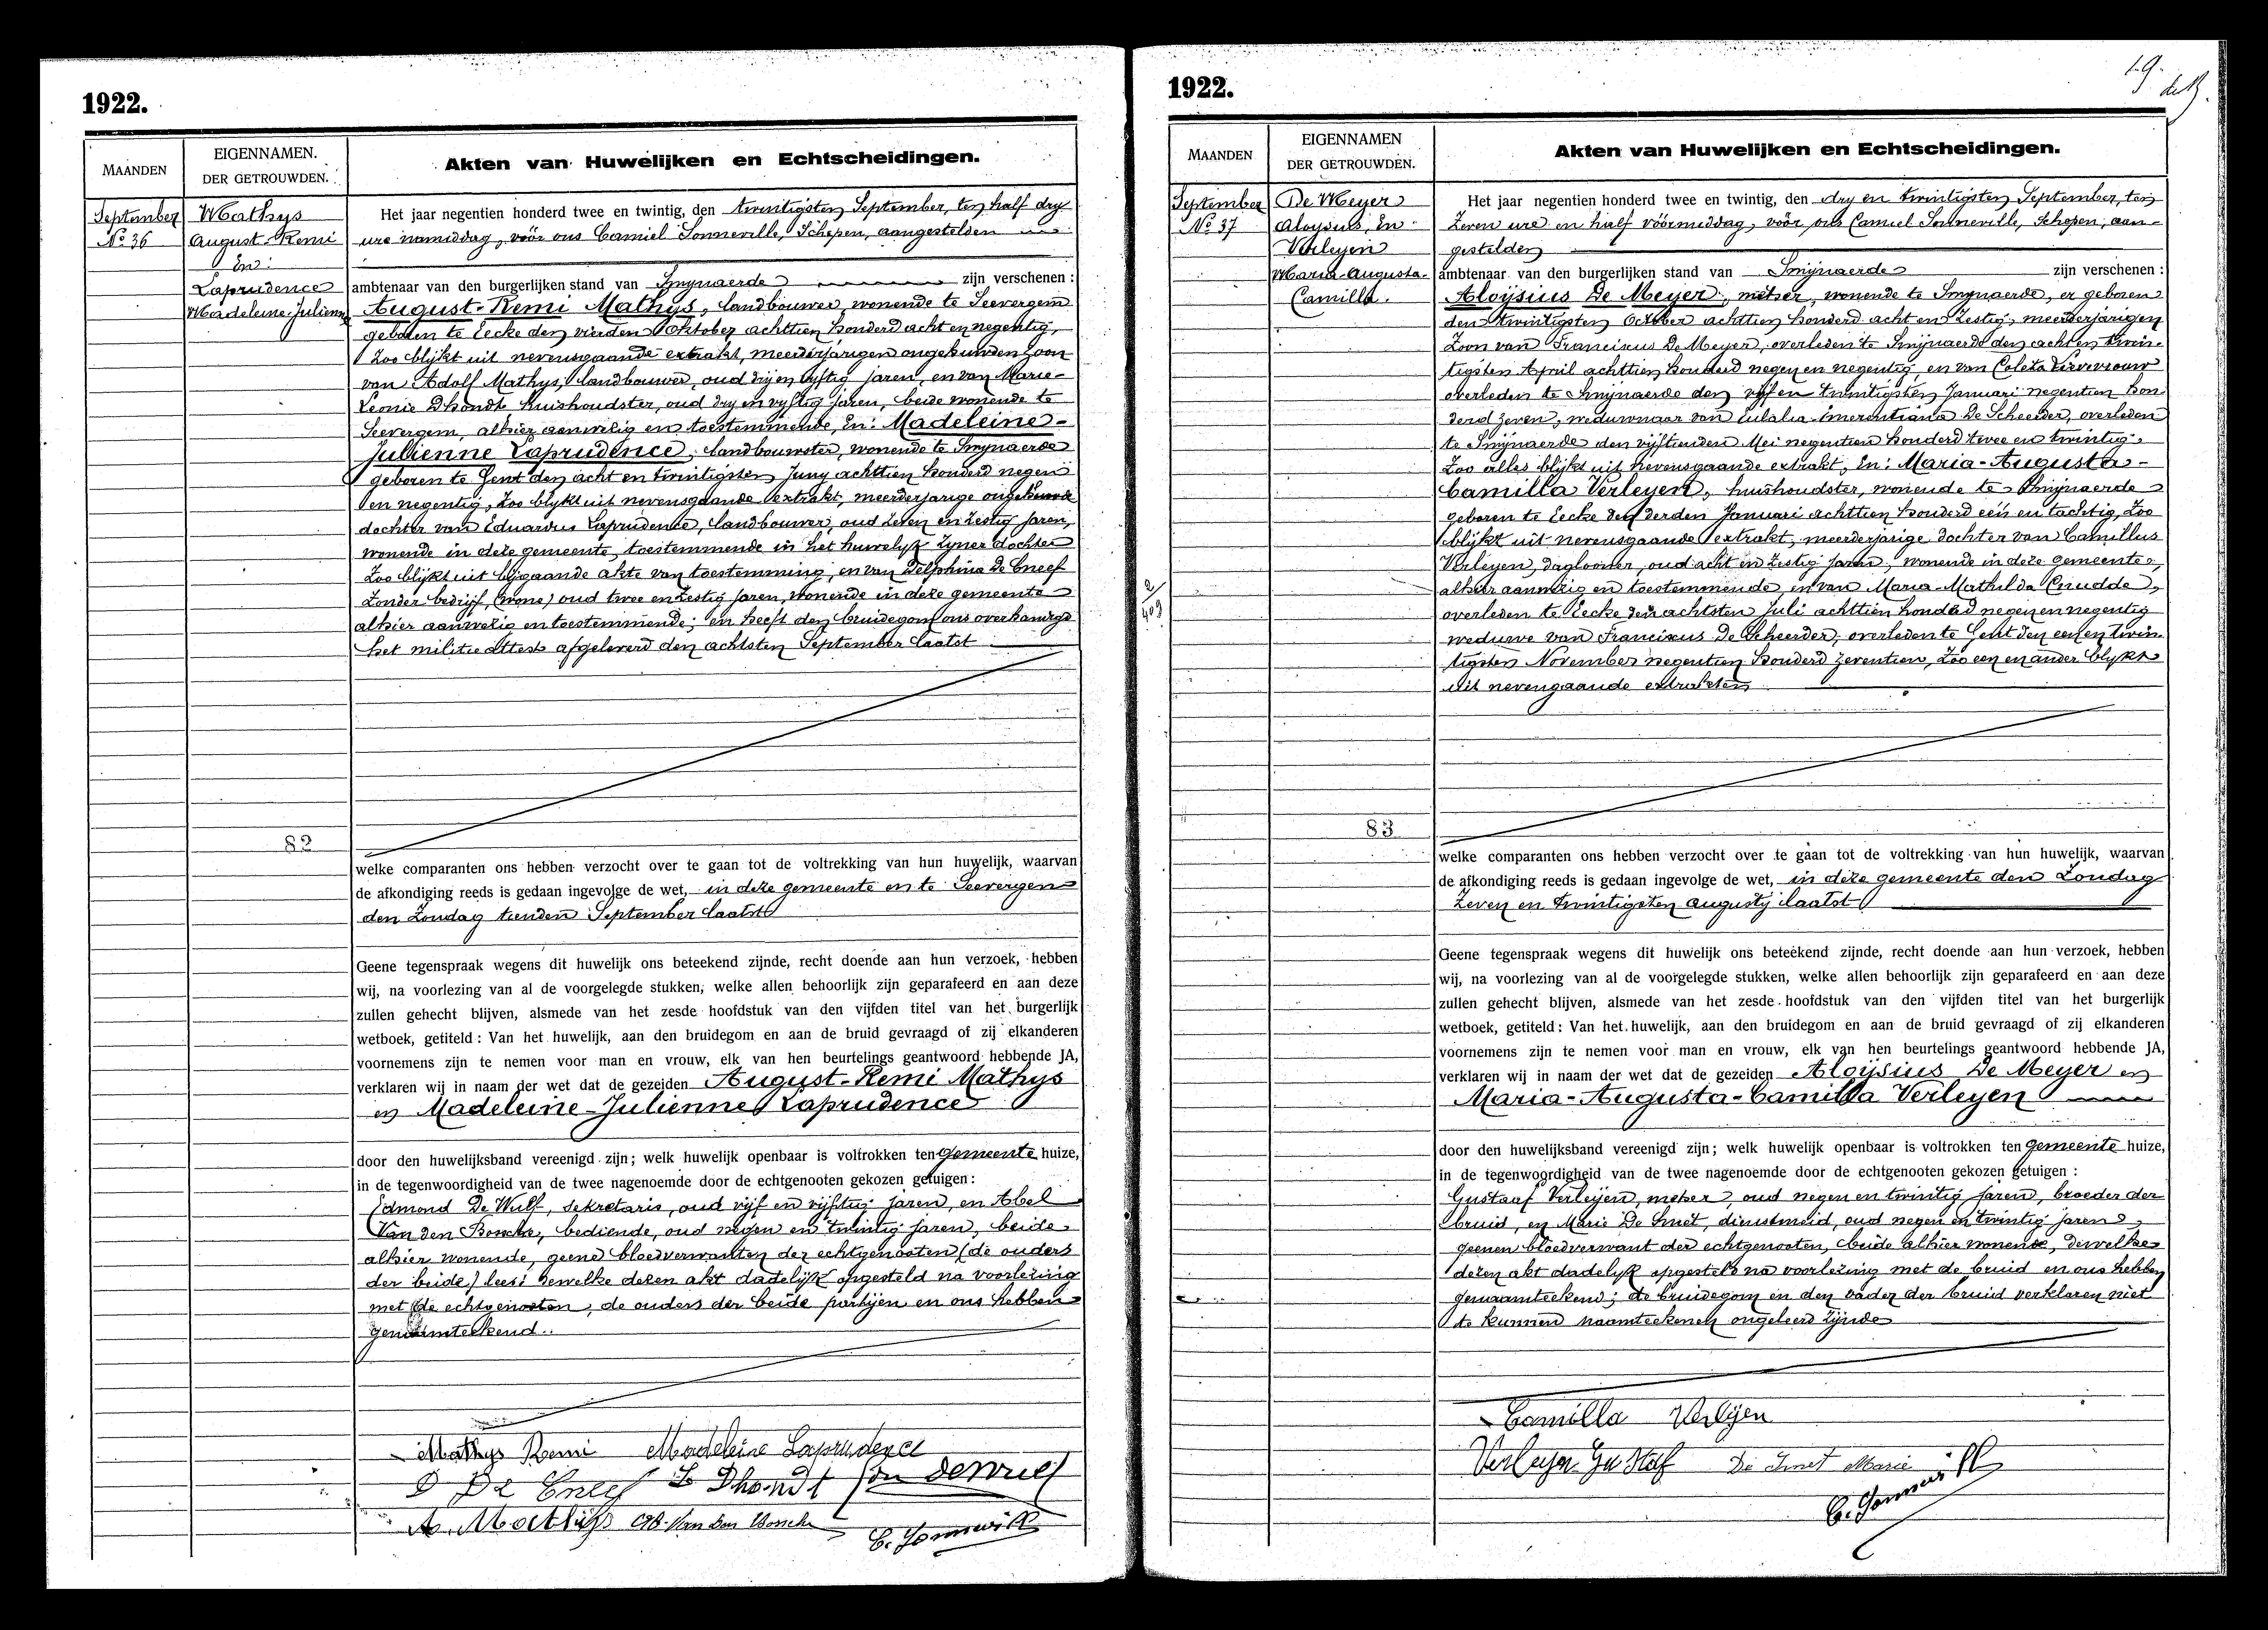 1922.
MAANDEN
EIGENNAMEN.
DER GETROUWDEN.
Akten van Huwelijken en Echtscheidingen.
September
No 36
Mathys
August-Remi
En:
Laprudence
Madeleine-Julienne
Het jaar negentien honderd twee en twintig, den twintigsten September, ten half dry
ure namiddag, vóór ons Camiel Sonneville, Schepen, aangestelden
ambtenaar van den burgerlijken stand van Smynaerde zijn verschenen :
August-Remi Mathys, landbouwer, wonende te Seevergem
geboren te Eecke den vierden Oktober achttien honderd acht en negentig,
Zoo blijkt uit nevensgaande extrakt, meerderjarigen ongehuwden zoon
van Adolf Mathys, landbouwer, oud dry en vyftig jaren, en van Marie-
Leonie Dhondt, huishoudster, oud dry en vyftig jaren, beide wonende te
Seevergem, alhier aanwezig en toestemmende, En: Madeleine-
Julienne Laprudence, landbouwster, wonende te Smynaerde
geboren te Gent den acht en twintigsten Juny achttien honderd negen
en negentig, Zoo blykt uit nevensgaande extrakt, meerderjarige ongehuwde
dochter van Eduardus Laprudence, landbouwer, oud zeven en zestig jaren,
wonende in deze gemeente, toestemmende in het huwelyk zyner dochter
Zoo blykt uit bijgaande akte van toestemming, en van Delphina De Cneef
zonder bedrijf, (wone) oud twee en zestig jaren, wonende in deze gemeente
alhier aanwezig en toestemmende; en heeft den bruidegom ons overhandigd
het militie attest afgeleverd den achtsten September laatst
82
welke comparanten ons hebben verzocht over te gaan tot de voltrekking van hun huwelijk, waarvan
de afkondiging reeds is gedaan ingevolge de wet, in deze gemeente en te Seevergem
den Zondag tienden September laatst
Geene tegenspraak wegens dit huwelijk ons beteekend zijnde, recht doende aan hun verzoek, hebben
wij, na voorlezing van al de voorgelegde stukken, welke allen behoorlijk zijn geparafeerd en aan deze
zullen gehecht blijven, alsmede van het zesde hoofdstuk van den vijfden titel van het burgerlijk
wetboek, getiteld : Van het huwelijk, aan den bruidegom en aan de bruid gevraagd of zij elkanderen
voornemens zijn te nemen voor man en vrouw, elk van hen beurtelings geantwoord hebbende JA,
verklaren wij in naam der wet dat de gezeiden August-Remi Mathys
en Madeleine-Julienne Laprudence
door den huwelijksband vereenigd zijn; welk huwelijk openbaar is voltrokken ten gemeente huize,
in de tegenwoordigheid van de twee nagenoemde door de echtgenooten gekozen getuigen :
Edmond De Wulf, sekretaris, oud vijf en vijftig jaren, en Abel
Van den Bossche, bediende, oud negen en twintig jaren, beide
alhier wonende, geene bloedverwanten der echtgenooten (de ouders
der beide) lees: dewelke dezen akt dadelijk opgesteld na voorlezing
met de echtgenooten, de ouders der beide partijen en ons hebben
genaamteekend.
Mathys Remi Madeleine Laprudence
D De Cneef L Dhondt
A. Mathijs Ab. Van den Bossche C. Sonneville
1922.
19.
MAANDEN
EIGENNAMEN
DER GETROUWDEN.
Akten van Huwelijken en Echtscheidingen.
September
No 37
De Meyer
Aloysius, En
Verleyen
Maria-Augusta-
Camilla.
Het jaar negentien honderd twee en twintig, den dry en twintigsten September, ten
Zeven ure en half vóórmiddag, vóór ons Camiel Sonneville, Schepen, aan-
gestelden
ambtenaar van den burgerlijken stand van Smijnaerde zijn verschenen :
Aloÿsius De Meyer, metser, wonende te Smynaerde, er geboren
den twintigsten October achttien honderd acht en zestig, meerderjarigen
Zoon van Franciscus De Meyer, overleden te Smijnaerde den acht en twin-
tigsten April achttien honderd negen en negentig, en van Coleta Lievevrouw
overleden te Smijnaerde den vijf en twintigsten Januari negentien hon-
derd zeven, weduwnaar van Eulalia-Emerentiana De Scheerder, overleden
te Smijnaerde den vijftienden Mei negentien honderd twee en twintig.
Zoo alles blijkt uit nevensgaande extrakt, En: Maria-Augusta-
Camilla Verleyen, huishoudster, wonende te Smijnaerde
geboren te Eecke den derden Januari achttien honderd een en tachtig, Zoo
blijkt uit nevensgaande extrakt, meerderjarige dochter van Camillus
Verleyen, daglooner, oud acht en zestig jaren, wonende in deze gemeente,
alhier aanwezig en toestemmende, en van Maria-Mathilda Cnudde,
overleden te Eecke den achtsten Juli achttien honderd negen en negentig
weduwe van Franciscus De Scheerder, overleden te Gent den een en twin-
tigsten November negentien honderd zeventien, Zoo een en ander blykt
uit nevengaande extrakten
83
welke comparanten ons hebben verzocht over te gaan tot de voltrekking van hun huwelijk, waarvan
de afkondiging reeds is gedaan ingevolge de wet, in deze gemeente den Zondag
Zeven en twintigsten augusty laatst
Geene tegenspraak wegens dit huwelijk ons beteekend zijnde, recht doende aan hun verzoek, hebben
wij, na voorlezing van al de voorgelegde stukken, welke allen behoorlijk zijn geparafeerd en aan deze
zullen gehecht blijven, alsmede van het zesde hoofdstuk van den vijfden titel van het burgerlijk
wetboek, getiteld : Van het huwelijk, aan den bruidegom en aan de bruid gevraagd of zij elkanderen
voornemens zijn te nemen voor man en vrouw, elk van hen beurtelings geantwoord hebbende JA,
verklaren wij in naam der wet dat de gezeiden Aloÿsius De Meyer en
Maria-Augusta-Camilla Verleyen
door den huwelijksband vereenigd zijn; welk huwelijk openbaar is voltrokken ten gemeente huize,
in de tegenwoordigheid van de twee nagenoemde door de echtgenooten gekozen getuigen :
Gustaaf Verleyen, metser, oud negen en twintig jaren, broeder der
bruid, en Marie De Smet, dienstmeid, oud negen en twintig jaren,
geenen bloedverwant der echtgenooten, beide alhier wonende, dewelke
dezen akt dadelyk opgesteld na voorlezing met de bruid en ons hebben
genaamteekend; de bruidegom en den vader der bruid verklaren niet
te kunnen naamteekenen ongeleerd zijnde
Camilla Verleyen
Verleyen Gustaf De Smet Marie
C. Sonneville